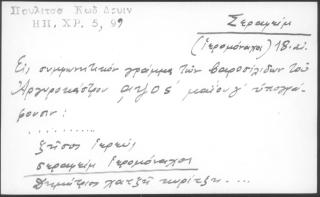 Πουλίτσα Κωδ Δρυιν
ΗΠ. ΧΡ. 5, 99
Σεραφείμ
(ἱερομόναχος) 18. αἰ.
Εἰς συμφωνητικὸν γράμμα τῶν βαροσιλίδων τοῦ
Ἀργυροκάστρου αψοσ΄ μαΐου γ΄ ὑπογρά-
φουσιν:
..........
ζῆσος ἱερεὺς
σεραφεὶμ ἱερομόναχος
Δημήτριος χατζῆ κυρίτζη....